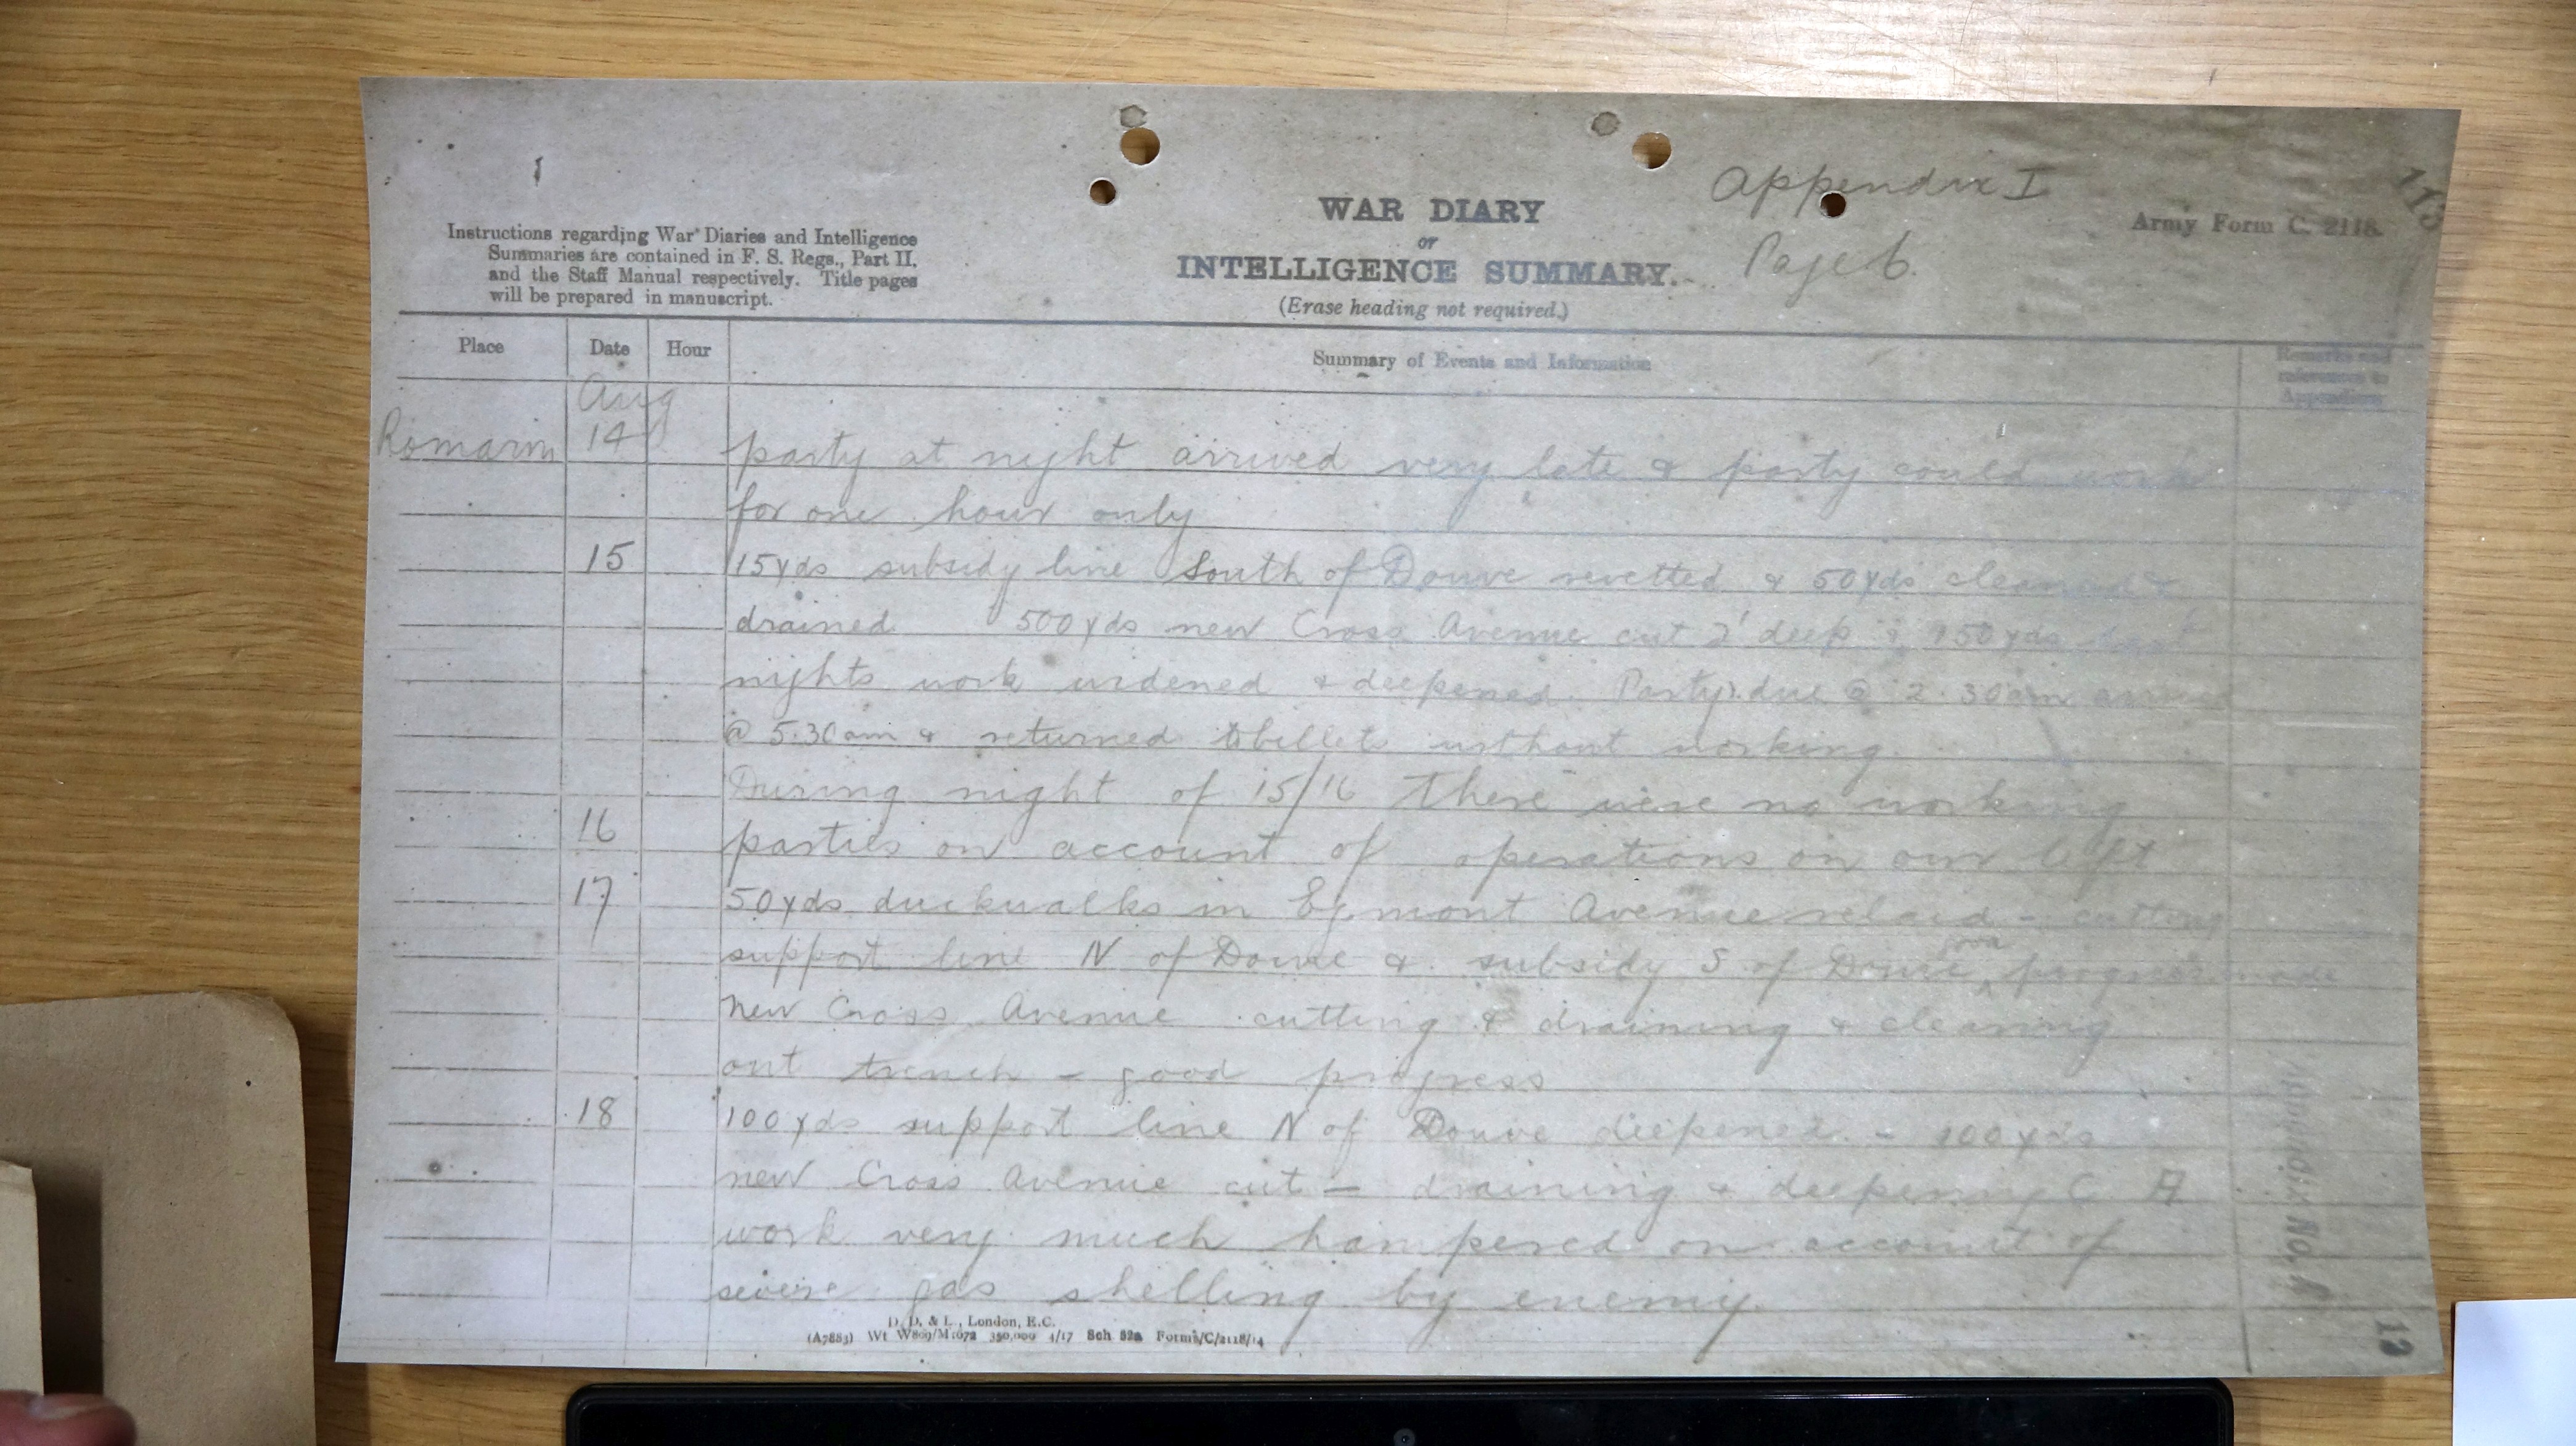 Appendix I
113
WAR DIARY
or
INTELLIGENCE SUMMARY.
Page 6.
(Erase heading not required.)
Army Form C. 2118.
Instructions regarding War Diaries and Intelligence
Summaries are contained in F. S. Regs., Part II,
and the Staff Manual respectively. Title pages
will be prepared in manuscript.
Place Date Hour Summary of Events and Information Remarks and
references to
Appendices
Aug
Romarin 14 party at night arrived very late & party could work
for one hour only
15 15yds subsidy line South of Douve revetted & 50yds cleaned &
drained 500yds new Cross Avenue cut 2' deep & 150yds last
nights work widened & deepened. Party due @ 2.30am arrived
@ 5.30am & returned to billets without working.
During night of 15/16 there were no working
16 parties on account of operations on our left
17 50yds duckwalks in Egmont Avenue relaid - cutting
support line N of Douve & subsidy S of Douve good progress made
New Cross Avenue cutting & draining & cleaning
out trench - good progress
18 100yds support line N of Douve deepened - 100yds
new Cross Avenue cut - draining & deepening C A
work very much hampered on account of
severe gas shelling by enemy.
Appendix No.
13
D. D. & L., London, E.C.
(A7883) Wt W809/M1672 350,000 4/17 Sch 52a Forms/C/2118/14